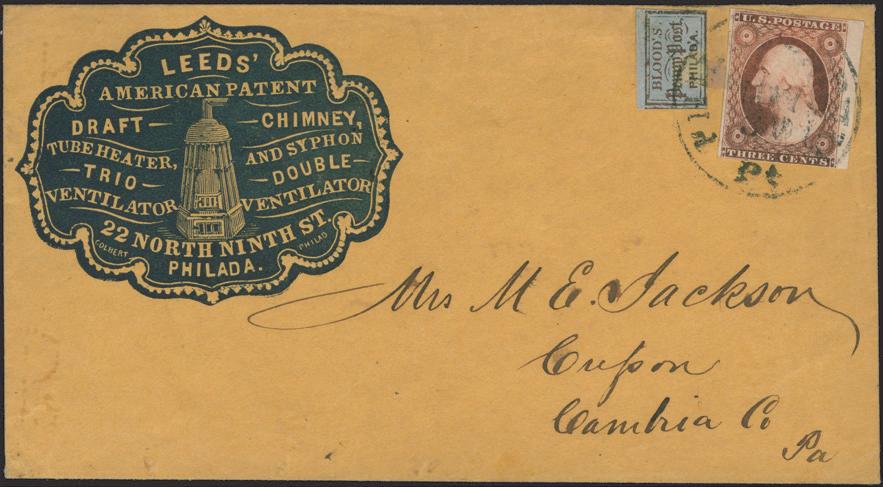 LEEDS'
AMERICAN PATENT
DRAFT CHIMNEY,
TUBE HEATER, AND SYPHON
TRIO DOUBLE
VENTILATOR VENTILATOR
22 NORTH NINTH ST.
COLBERT PHILAD
PHILADA.
BLOOD'S
Penny Post,
PHILAD'A.
U.S. POSTAGE
THREE CENTS
Pa
Mrs M E. Jackson
Cresson
Cambria Co
Pa